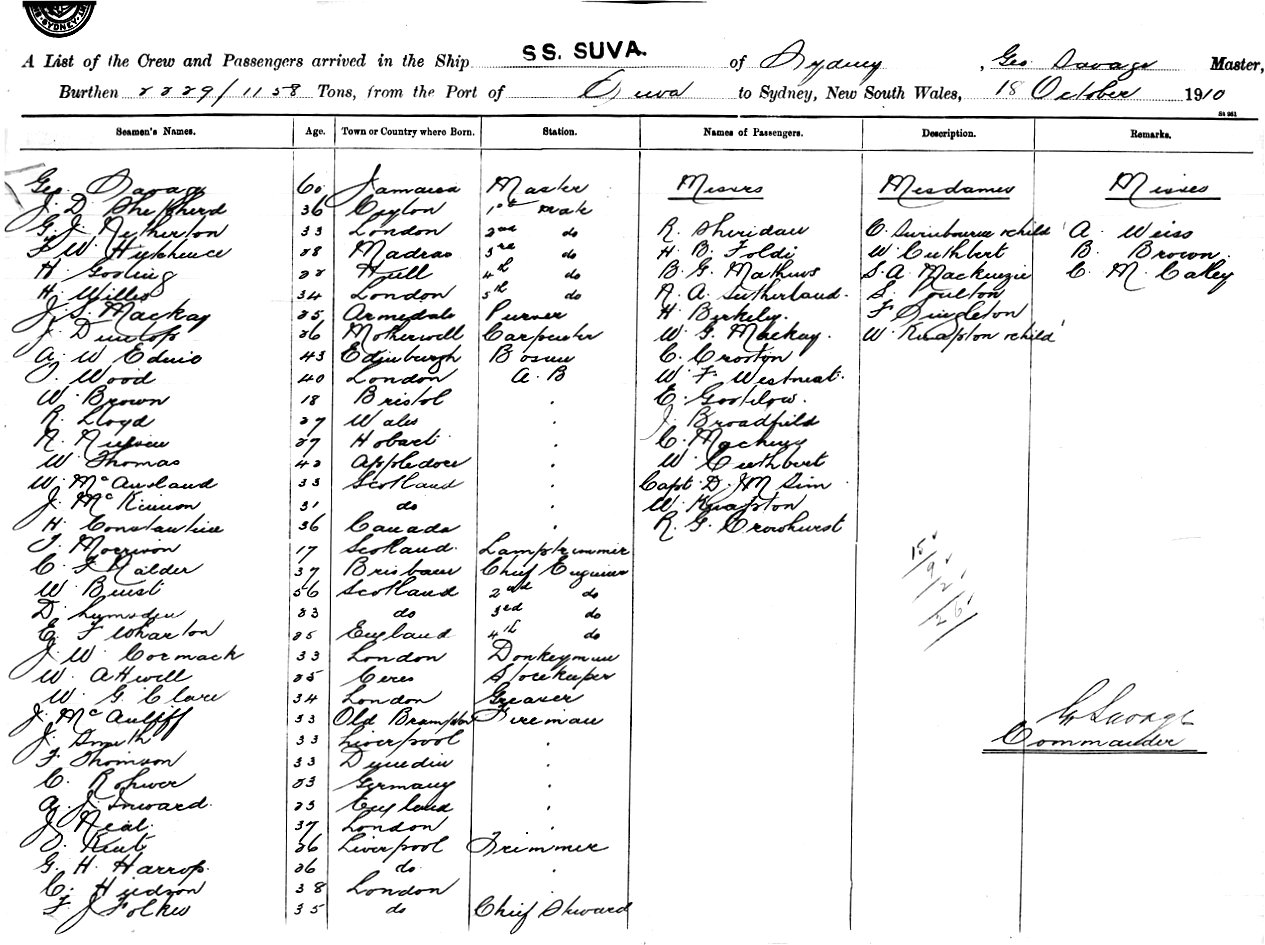 SYDNEY
A List of the Crew and Passengers arrived in the Ship SS. SUVA. of Sydney, Geo Savage Master,
Burthen 2229/1158 Tons, from the Port of Suva to Sydney, New South Wales, 18 October 1910
St 961
Seamen's Names. Age. Town or Country where Born. Station. Names of Passengers. Description. Remarks.
Geo. Savage 60 Jamaica Master Misses Mesdames Misses
J. D. Shepherd 36 Ceylon 1st mate
G. J. Netherton 33 London 2nd do R. Sheridan C. child A Weiss
F. W. 28 Madras 3rd do H. B. Foldi W. Cuthbert B. Brown
H. Gosling 22 Hull 4th do B. G. Mathews S. A. Mackenzie C. M. Catley
H. Willis 34 London 5th do R. A. Sutherland. S. Poulton
J. S. Mackay 25 Armadale Purser H Berkeley. F Singleton
J. Dunlop 26 Motherwell Carpenter W. G. Mackay. W. Knapton child
A. W. 43 Edinburgh Bosun C. Croxton
T. Wood 40 London A. B W. F. Westneat.
W. Brown 18 Bristol . E.
R. Lloyd 27 Wales . J. Broadfield
27 Hobart . C.
W. Thomas 42 Appledore . W. Cuthbert
W. McAusland 33 Scotland . Capt D. J. M Sim
J. McKinnon 31 do . W. Knapton
H. Constantine 36 Canada . R. G. Crowhurst
T. Morrison 17 Scotland. Lamptrimmer
C. F. Nalder 37 Brisbane Chief Engineer
W. Buist 56 Scotland 2nd do
D. Lumsden 23 do 3rd do
E. F. Wharton 25 England 4th do
J. W. Cormack 33 London Donkeyman
W. Attwell 25 Ceres Storekeeper
W. G. Clare 34 London Greaser
J. McAuliff 33 Old Brampton Fireman
J. Smith 33 Liverpool .
F. Thomson 33 Dunedin .
C. Rohwer 23 Germany .
A. J. Inward. 23 England .
J. Neal. 37 London .
Kent 26 Liverpool Trimmer
G. H. Harrop. 26 do. .
C. Hudson 38 London
F. J. Folkes 35 do Chief Steward
15/
9/
2/
26/
G Savage
Commander